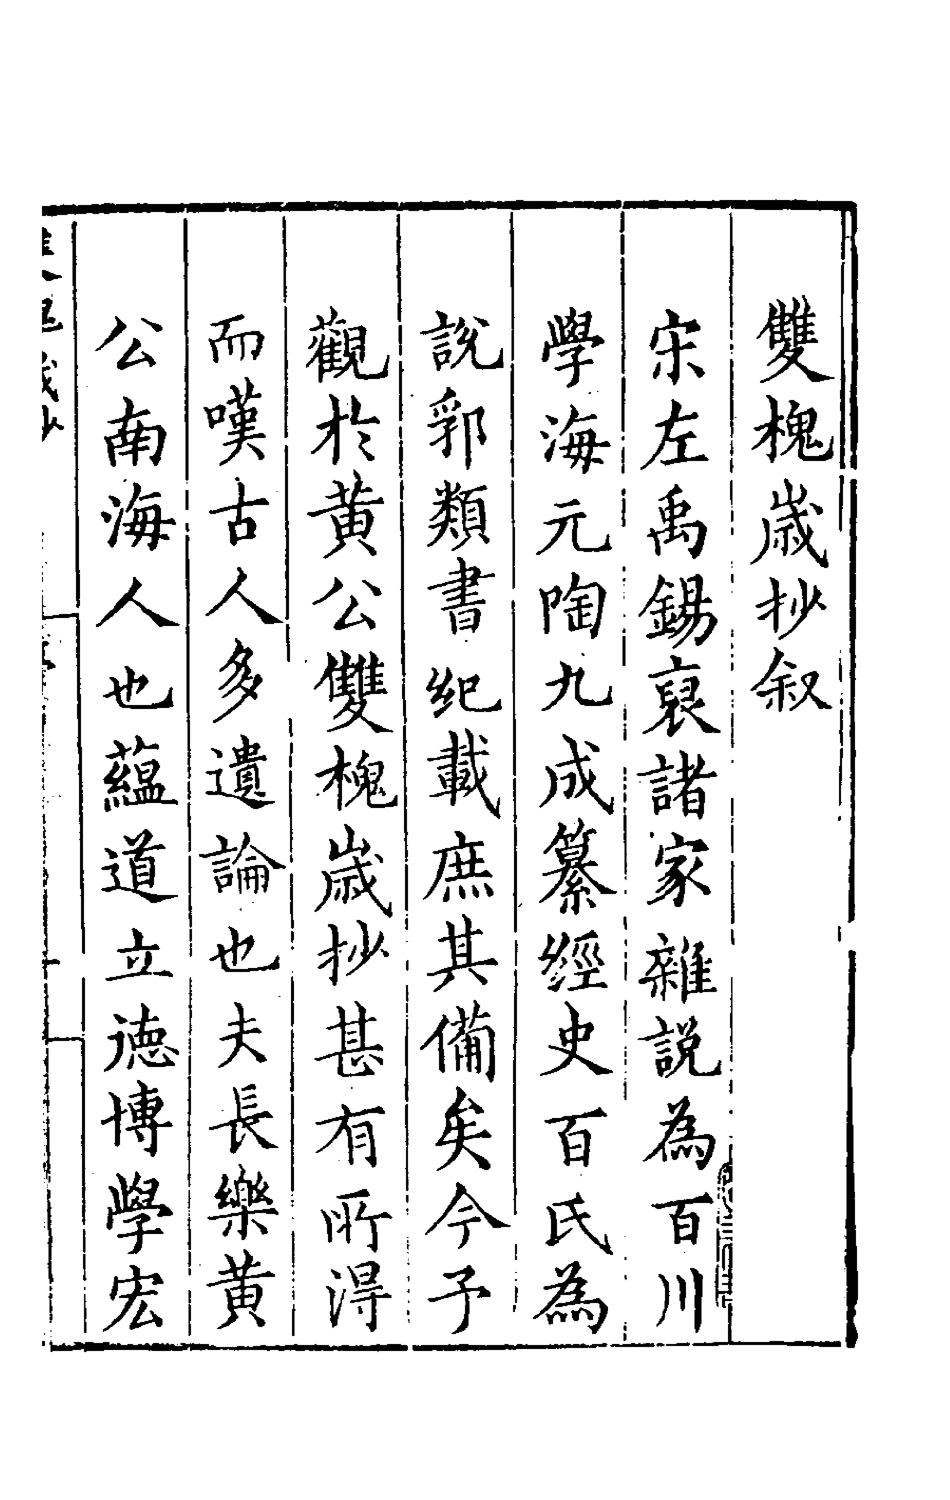 雙槐歲抄叙
宋左禹錫裒諸家雜說為百川
學海元陶九成纂經史百氏為
說郛類書紀載庶其備矣今予
觀於黃公雙槐歲抄甚有所得
而嘆古人多遺論也夫長樂黃
公南海人也蘊道立德博學宏